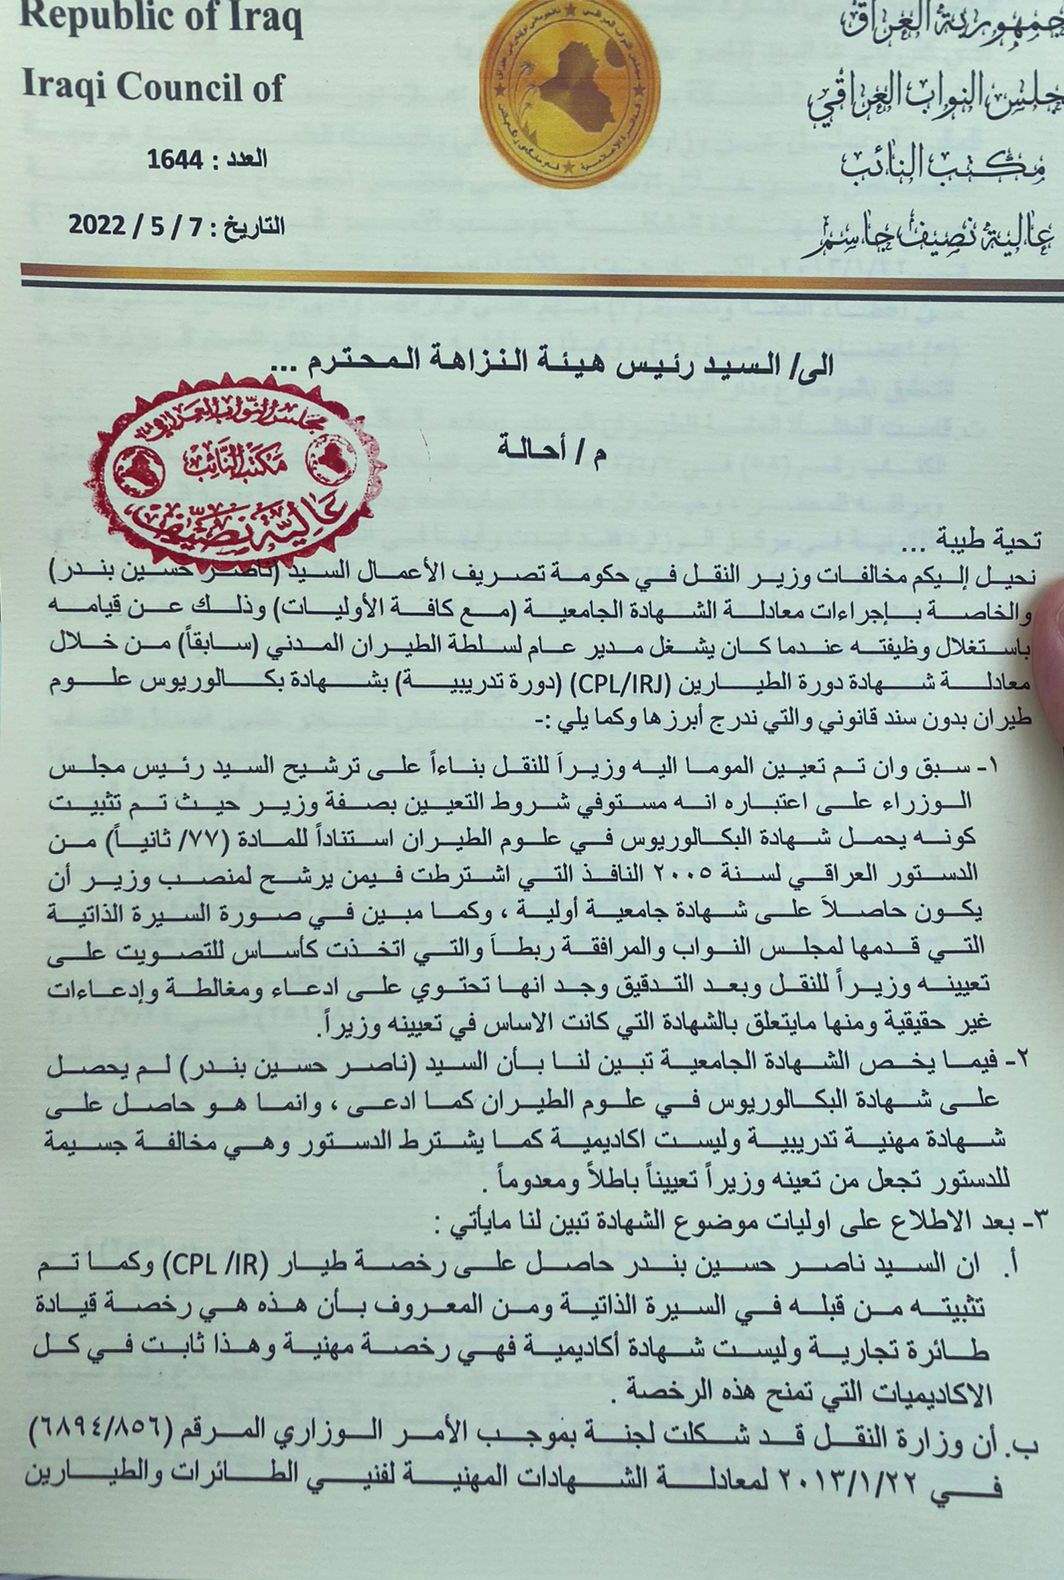 Republic of Iraq
جمهورية العراق
Iraqi Council of
مجلس النواب العراقي
مكتب النائب
العدد : 1644
عالية نصيف جاسم
التاريخ : 7 / 5 / 2022
الى/ السيد رئيس هيئة النزاهة المحترم ...
م / أحالة
مجلس النواب العراقي
مكتب النائب
عالية نصيف
تحية طيبة ...
نحيل إليكم مخالفات وزير النقل في حكومة تصريف الأعمال السيد (ناصر حسين بندر)
والخاصة بإجراءات معادلة الشهادة الجامعية (مع كافة الأوليات) وذلك عن قيامه
باستغلال وظيفته عندما كان يشغل مدير عام لسلطة الطيران المدني (سابقاً) من خلال
معادلة شهادة دورة الطيارين (CPL/IRJ) (دورة تدريبية) بشهادة بكالوريوس علوم
طيران بدون سند قانوني والتي ندرج أبرزها وكما يلي :-
١- سبق وان تم تعيين الموما اليه وزيراَ للنقل بناءاً على ترشيح السيد رئيس مجلس
الوزراء على اعتباره انه مستوفي شروط التعيين بصفة وزير حيث تم تثبيت
كونه يحمل شهادة البكالوريوس في علوم الطيران استناداً للمادة (٧٧/ ثانياً) من
الدستور العراقي لسنة ٢٠٠٥ النافذ التي اشترطت فيمن يرشح لمنصب وزير أن
يكون حاصلاَ على شهادة جامعية أولية ، وكما مبين في صورة السيرة الذاتية
التي قدمها لمجلس النواب والمرافقة ربطاَ والتي اتخذت كأساس للتصويت على
تعيينه وزيراً للنقل وبعد التدقيق وجد انها تحتوي على ادعاء ومغالطة وإدعاءات
غير حقيقية ومنها مايتعلق بالشهادة التي كانت الاساس في تعيينه وزيراً.
٢- فيما يخص الشهادة الجامعية تبين لنا بأن السيد (ناصر حسين بندر) لم يحصل
على شهادة البكالوريوس في علوم الطيران كما ادعى ، وانما هو حاصل على
شهادة مهنية تدريبية وليست اكاديمية كما يشترط الدستور وهي مخالفة جسيمة
للدستور تجعل من تعينه وزيراً تعييناً باطلاً ومعدوماً .
٣- بعد الاطلاع على اوليات موضوع الشهادة تبين لنا مايأتي :
أ. ان السيد ناصر حسين بندر حاصل على رخصة طيار (CPL /IR) وكما تم
تثبيته من قبله في السيرة الذاتية ومن المعروف بأن هذه هي رخصة قيادة
طائرة تجارية وليست شهادة أكاديمية فهي رخصة مهنية وهذا ثابت في كل
الاكاديميات التي تمنح هذه الرخصة .
ب. أن وزارة النقل قد شكلت لجنة بموجب الأمر الوزاري المرقم (٦٨٩٤/٨٥٦)
في ٢٠١٣/١/٢٢ لمعادلة الشهادات المهنية لفنيي الطائرات والطيارين